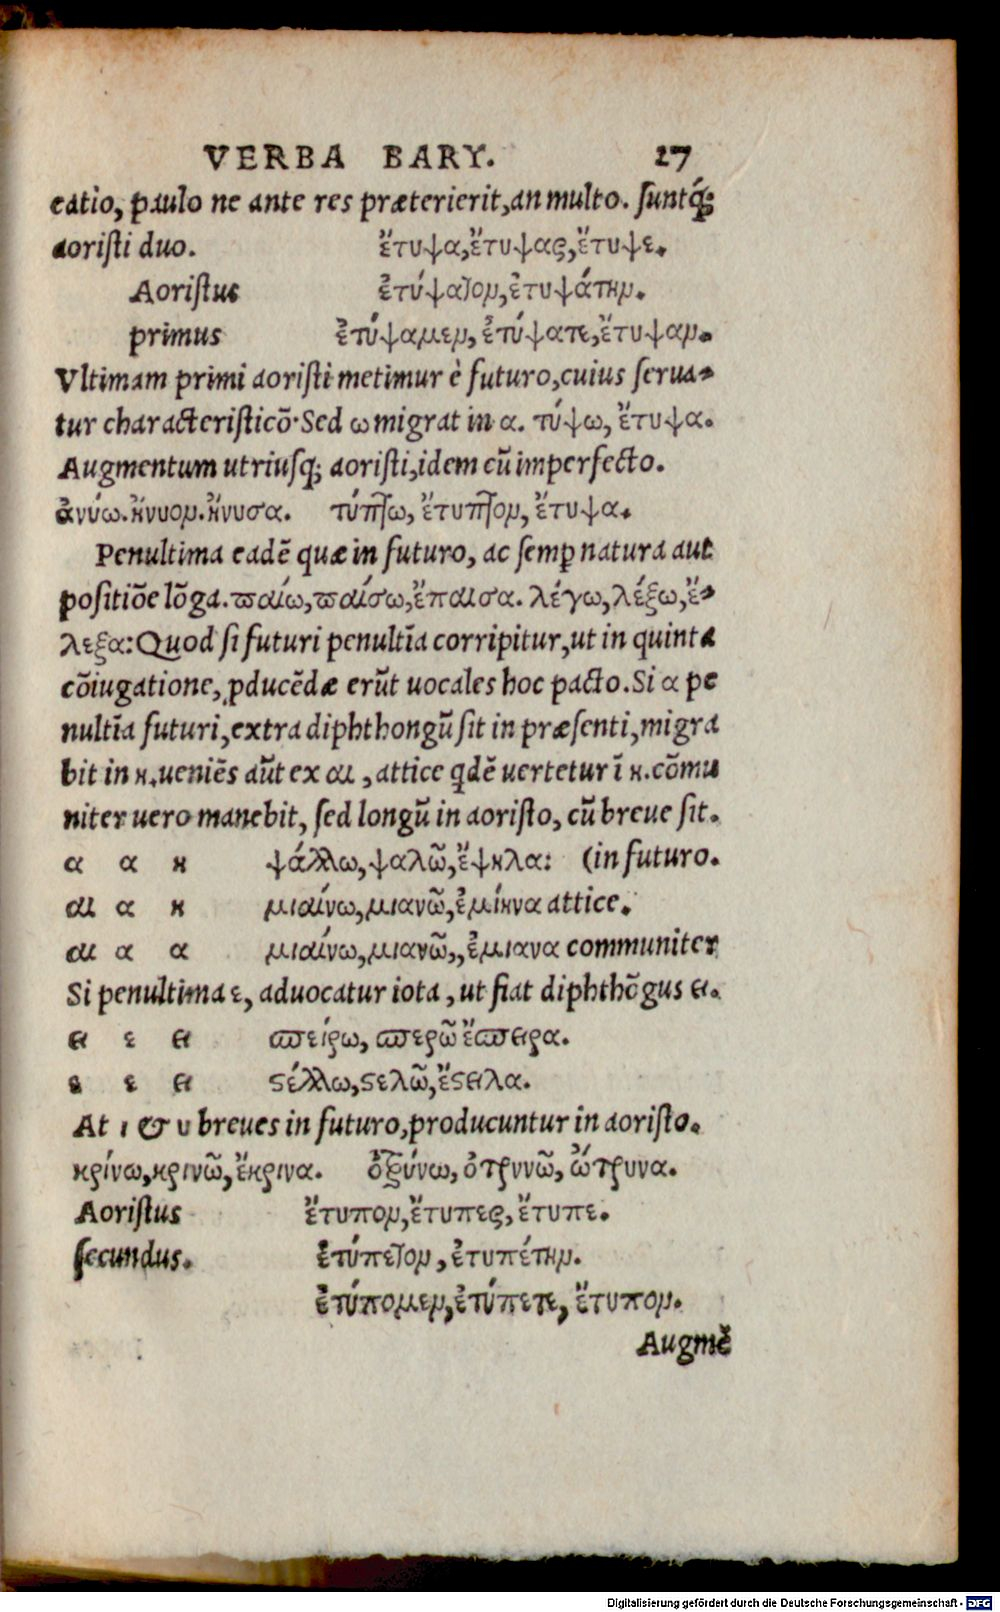 VERBA BARY. 27
catio, paulo ne ante res præterierit, an multo. suntq́;
aoristi duo. ἔτυψα, ἔτυψας, ἔτυψε.
Aoristus ἐτύψατον, ἐτυψάτην.
primus ἐτύψαμεν, ἐτύψατε, ἔτυψαν.
Vltimam primi aoristi metimur è futuro, cuius serua-
tur characteristicō. Sed ω migrat in α. τύψω, ἔτυψα.
Augmentum utriusq; aoristi, idem cū imperfecto.
ἀνύω. ἤνυον. ἤνυσα. τύπτω, ἔτυπτον, ἔτυψα.
Penultima eadē quæ in futuro, ac semp natura aut
positiōe lōga. παίω, παίσω, ἔπαισα. λέγω, λέξω, ἔ-
λεξα: Quod si futuri penultīa corripitur, ut in quinta
cōiugatione, ꝓducēdæ erūt uocales hoc pacto. Si α pe
nultīa futuri, extra diphthongū sit in præsenti, migra
bit in η. ueniēs aūt ex αι, attice qdē uertetur ī η. cōmu
niter uero manebit, sed longū in aoristo, cū breue sit.
α α η ψάλλω, ψαλῶ, ἔψηλα: (in futuro.
αι α η μιαίνω, μιανῶ, ἐμίηνα attice.
αι α α μιαίνω, μιανῶ,, ἐμιανα communiter
Si penultima ε, aduocatur iota, ut fiat diphthōgus ει.
ει ε ει σπείρω, σπερῶ ἔσπειρα.
ε ε ει στέλλω, στελῶ, ἔστειλα.
At ι & υ breues in futuro, producuntur in aoristo.
κρίνω, κρινῶ, ἔκρινα. ὀτρύνω, ὀτρυνῶ, ὤτρυνα.
Aoristus ἔτυπον, ἔτυπες, ἔτυπε.
secundus. ἐτύπετον, ἐτυπέτην.
ἐτύπομεν, ἐτύπετε, ἔτυπον.
Augmē
Digitalisierung gefördert durch die Deutsche Forschungsgemeinschaft - DFG